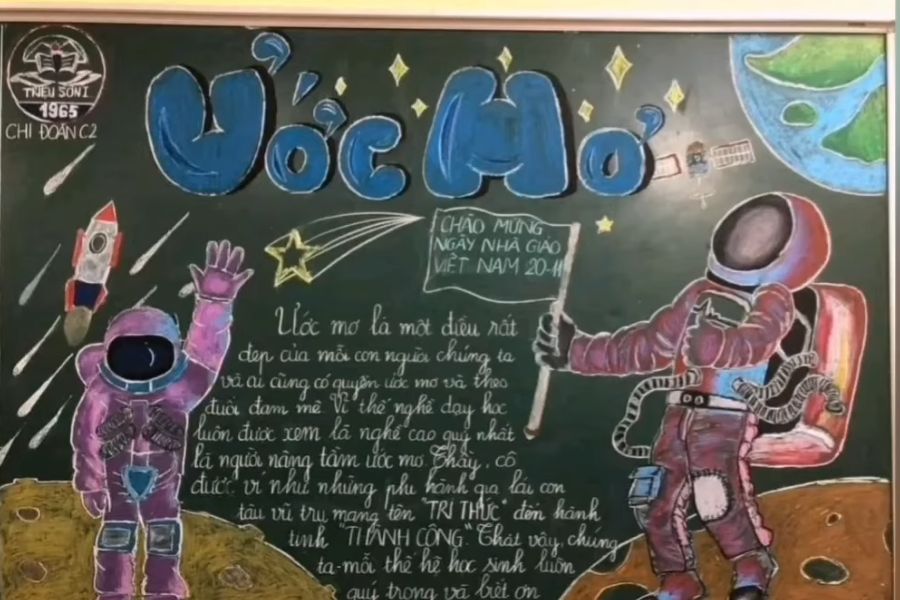 TRIỆU SƠN I
1965
CHI ĐOÀN C2
ƯỚC MƠ
CHÀO MỪNG
NGÀY NHÀ GIÁO
VIỆT NAM 20-11
Ước mơ là một điều rất
đẹp của mỗi con người chúng ta
và ai cũng có quyền ước mơ và theo
đuổi đam mê. Vì thế nghề dạy học
luôn được xem là nghề cao quý nhất
là người nâng tầm ước mơ. Thầy, cô
được ví như những phi hành gia lái con
tàu vũ trụ mang tên "TRI THỨC" đến hành
tinh "THÀNH CÔNG". Thật vậy, chúng
ta-mỗi thế hệ học sinh luôn
quý trọng và biết ơn